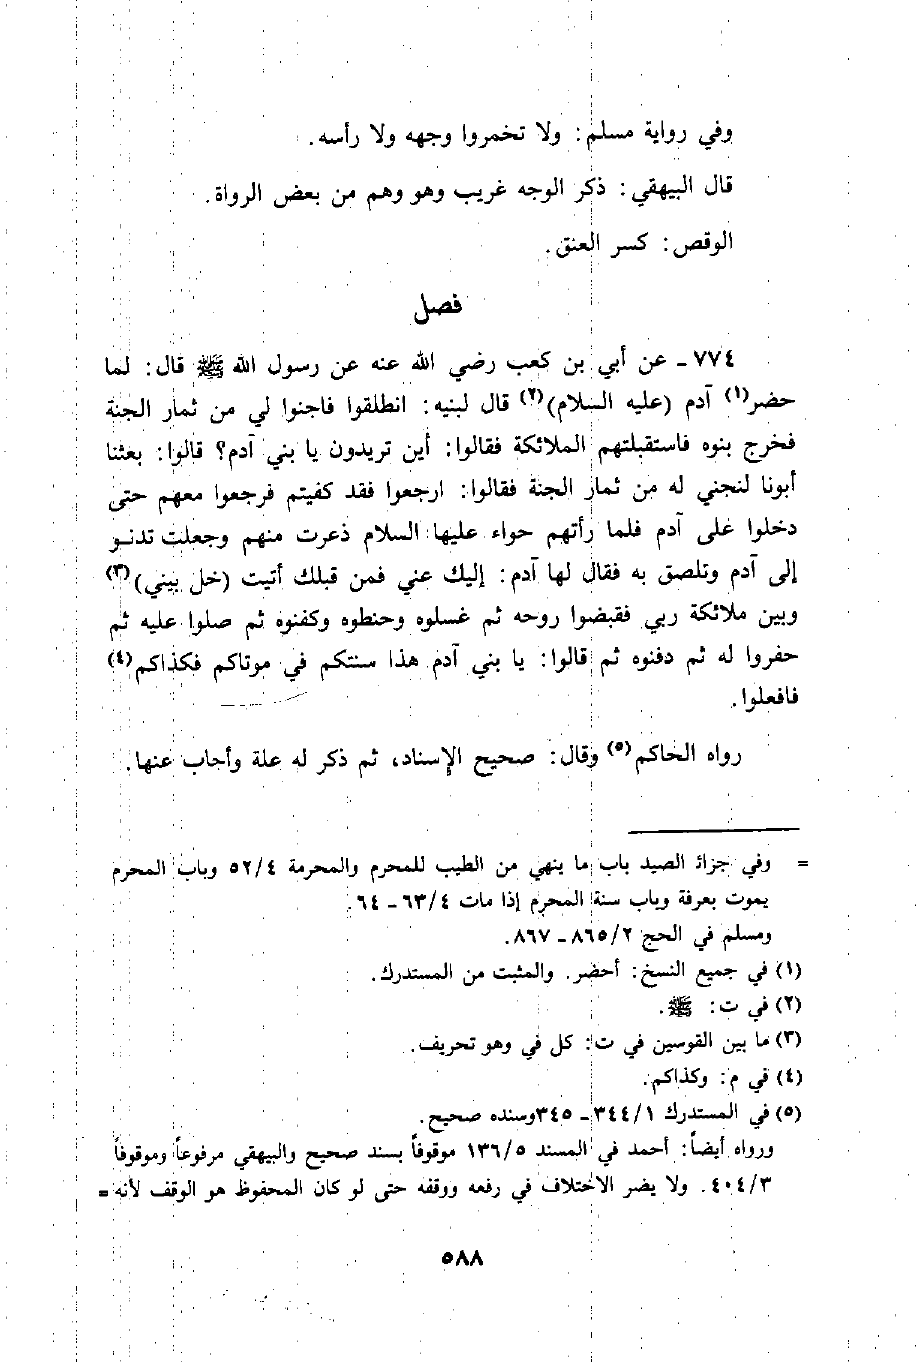 وفي رواية مسلم: ولا تخمروا وجهه ولا رأسه.
قال البيهقي: ذكر الوجه غريب وهو وهم من بعض الرواة.
الوقص: كسر العنق.
فصل
٧٧٤ـ عن أبي بن كعب رضي الله عنه عن رسول الله ﷺ قال: لما
حضر(١) آدم (عليه السلام)(٢) قال لبنيه: انطلقوا فاجنوا لي من ثمار الجنة
فخرج بنوه فاستقبلتهم الملائكة فقالوا: أين تريدون يا بني آدم؟ قالوا: بعثنا
أبونا لنجني له من ثمار الجنة فقالوا: ارجعوا فقد كفيتم فرجعوا معهم حتى
دخلوا على آدم فلما رأتهم حواء عليها السلام ذعرت منهم وجعلت تدنو
إلى آدم وتلصق به فقال لها آدم: إليك عني فمن قبلك أتيت (خل بيني)(٣)
وبين ملائكة ربي فقبضوا روحه ثم غسلوه وحنطوه وكفنوه ثم صلوا عليه ثم
حفروا له ثم دفنوه ثم قالوا: يا بني آدم هذا سنتكم في موتاكم فكذاكم(٤)
فافعلوا.
رواه الحاكم(٥) وقال: صحيح الإسناد، ثم ذكر له علة وأجاب عنها.
= وفي جزاء الصيد باب ما ينهي من الطيب للمحرم والمحرمة ٥٢/٤ وباب المحرم
يموت بعرفة وباب سنة المحرم إذا مات ٦٣/٤ ـ ٦٤.
ومسلم في الحج ٨٦٥/٢ ـ ٨٦٧.
(١) في جميع النسخ: أحضر. والمثبت من المستدرك.
(٢) في ت: ﷺ.
(٣) ما بين القوسين في ت: كل في وهو تحريف.
(٤) في م: وكذاكم.
(٥) في المستدرك ٣٤٤/١ ـ ٣٤٥وسنده صحيح.
ورواه أيضاً: أحمد في المسند ١٣٦/٥ موقوفاً بسند صحيح والبيهقي مرفوعاً وموقوفاً
٤٠٤/٣. ولا يضر الاختلاف في رفعه ووقفه حتى لو كان المحفوظ هو الوقف لأنه =
٥٨٨